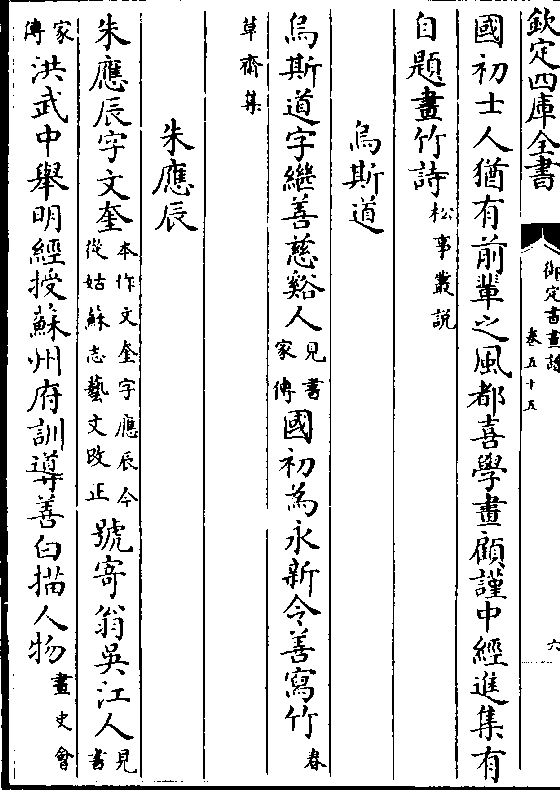 欽定四庫全書
御定書畫譜
卷五十五
六
國初士人猶有前輩之風都喜學畫顧謹中經進集有
自題畫竹詩松事叢説
烏斯道
烏斯道字繼善慈谿人見書家傳國初為永新令善寫竹春
草齋集
朱應辰
朱應辰字文奎本作文奎字應辰今從姑蘇志藝文改正號寄翁吳江人見書
家傳洪武中舉明經授蘇州府訓導善白描人物畫史會